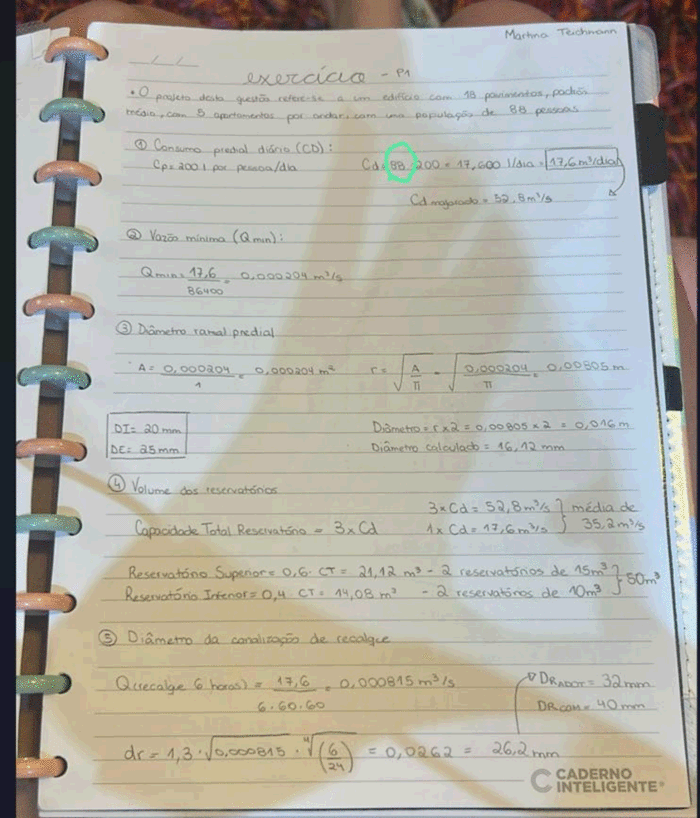 Martina Teichmann
exercício - P1
• O projeto desta questão refere-se a um edifício com 18 pavimentos, padrão
médio, com 5 apartamentos por andar, com uma população de 88 pessoas
① Consumo predial diário (CD):
Cp = 200 l por pessoa/dia Cd = 88 . 200 = 17,600 l/dia = 17,6 m³/dia
Cd majorado = 52,8 m³/s
② Vazão mínima (Qmin):
Qmin = 17,6 / 86400 = 0,000204 m³/s
③ Diâmetro ramal predial
A = 0,000204 / 1 = 0,000204 m² r = √(A/π) = √(0,000204/π) = 0,00805 m
DI = 20 mm Diâmetro = r x 2 = 0,00805 x 2 = 0,016 m
DE = 25 mm Diâmetro calculado = 16,12 mm
④ Volume dos reservatórios
3 x Cd = 52,8 m³/s } média de
Capacidade Total Reservatório = 3 x Cd 1 x Cd = 17,6 m³/s } 35,2 m³/s
Reservatório Superior = 0,6 . CT = 21,12 m³ - 2 reservatórios de 15m³ } 50m³
Reservatório Inferior = 0,4 . CT = 14,08 m³ - 2 reservatórios de 10m³
⑤ Diâmetro da canalização de recalque
Q(recalque 6 horas) = 17,6 / 6.60.60 = 0,000815 m³/s DRADOT = 32 mm
DRCOM = 40 mm
dr = 1,3 . √0,000815 . ⁴√(6/24) = 0,0262 = 26,2 mm
CADERNO
INTELIGENTE®